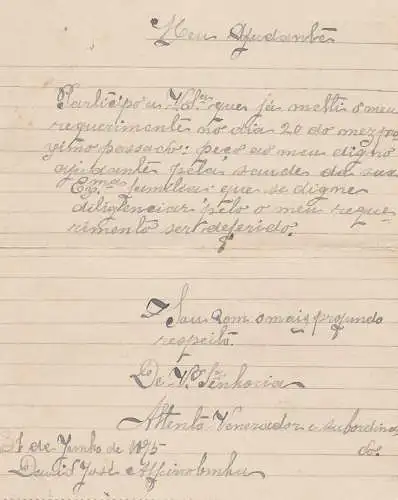 Meu Ajudante
Participo a V.ª S.ª que já metti o meu
requerimento no dia 20 do mez pro
ximo passado: peço ao meu digno
ajudante pela saude da sua
Ex.ma familia que se digne
diligenciar pelo o meu reque
rimento ser deferido.
Sou com o mais profundo
respeito
De V.ª Senhoria
Attento Venerador e subordina
do.
1 de Junho de 1895
David José